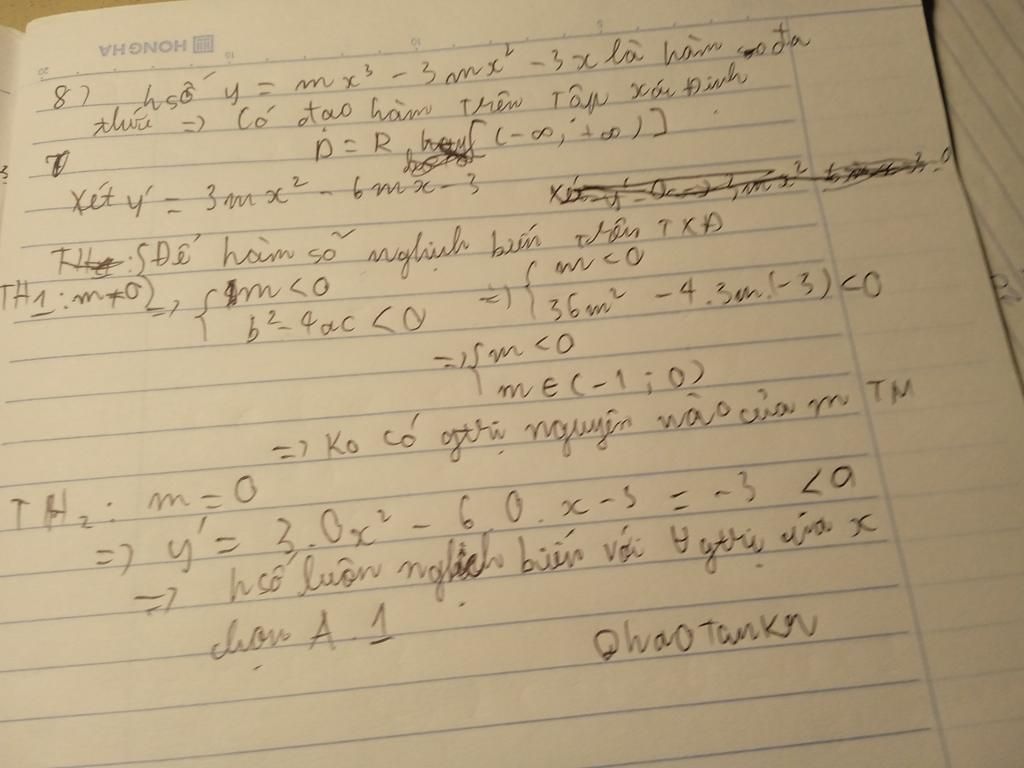 HONG HA
20 15 10 5
8) hsố y = mx³ - 3mx² - 3x là hàm số đa
thức => Có đạo hàm trên tập xác định
D = R (-∞; +∞)]
Xét y' = 3mx² - 6mx - 3
TH1: m≠0 Để hàm số nghịch biến trên TXĐ
=> { m < 0
b² - 4ac < 0
=> { m < 0
36m² - 4.3m.(-3) < 0
=> { m < 0
m ∈ (-1; 0)
=> Ko có gtrị nguyên nào của m TM
TH₂: m = 0
=> y' = 3.0x² - 6.0.x - 3 = -3 < 0
=> hsố luôn nghịch biến với ∀ gtrị của x
chọn A. 1